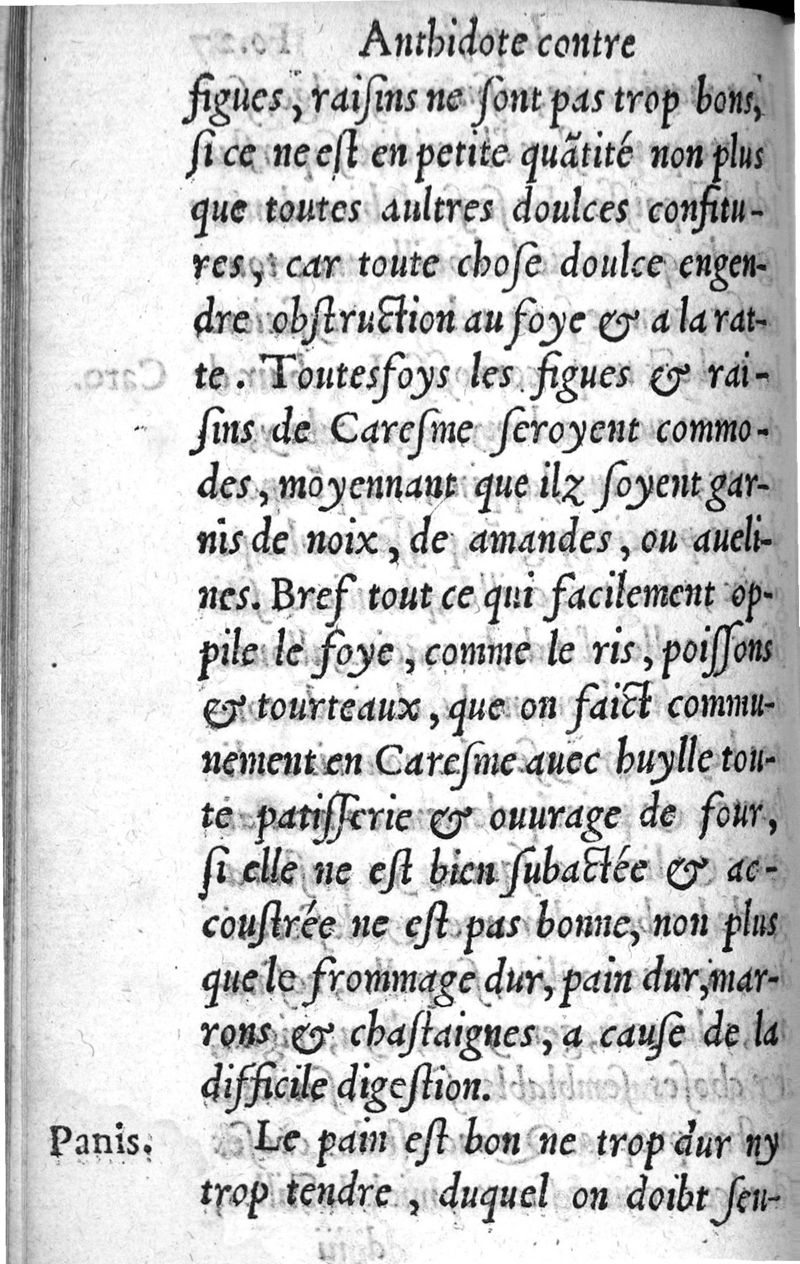 Anthidote contre
figues, raiſins ne ſont pas trop bons,
ſi ce ne eſt en petite quãtité non plus
que toutes aultres doulces confitu-
res, car toute choſe doulce engen-
dre obſtruction au foye & a la rat-
te. Toutesfoys les figues & rai-
ſins de Careſme ſeroyent commo-
des, moyennant que ilz ſoyent gar-
nis de noix, de amandes, ou aueli-
nes. Bref tout ce qui facilement op-
pile le foye, comme le ris, poiſſons
& tourteaux, que on faict commu-
nement en Careſme auec huylle tou-
te patiſſerie & ouurage de four,
ſi elle ne eſt bien ſubactée & ac-
couſtrée ne eſt pas bonne, non plus
que le frommage dur, pain dur, mar-
rons & chaſtaignes, a cauſe de la
difficile digeſtion.
Panis. Le pain eſt bon ne trop dur ny
trop tendre, duquel on doibt ſeu-